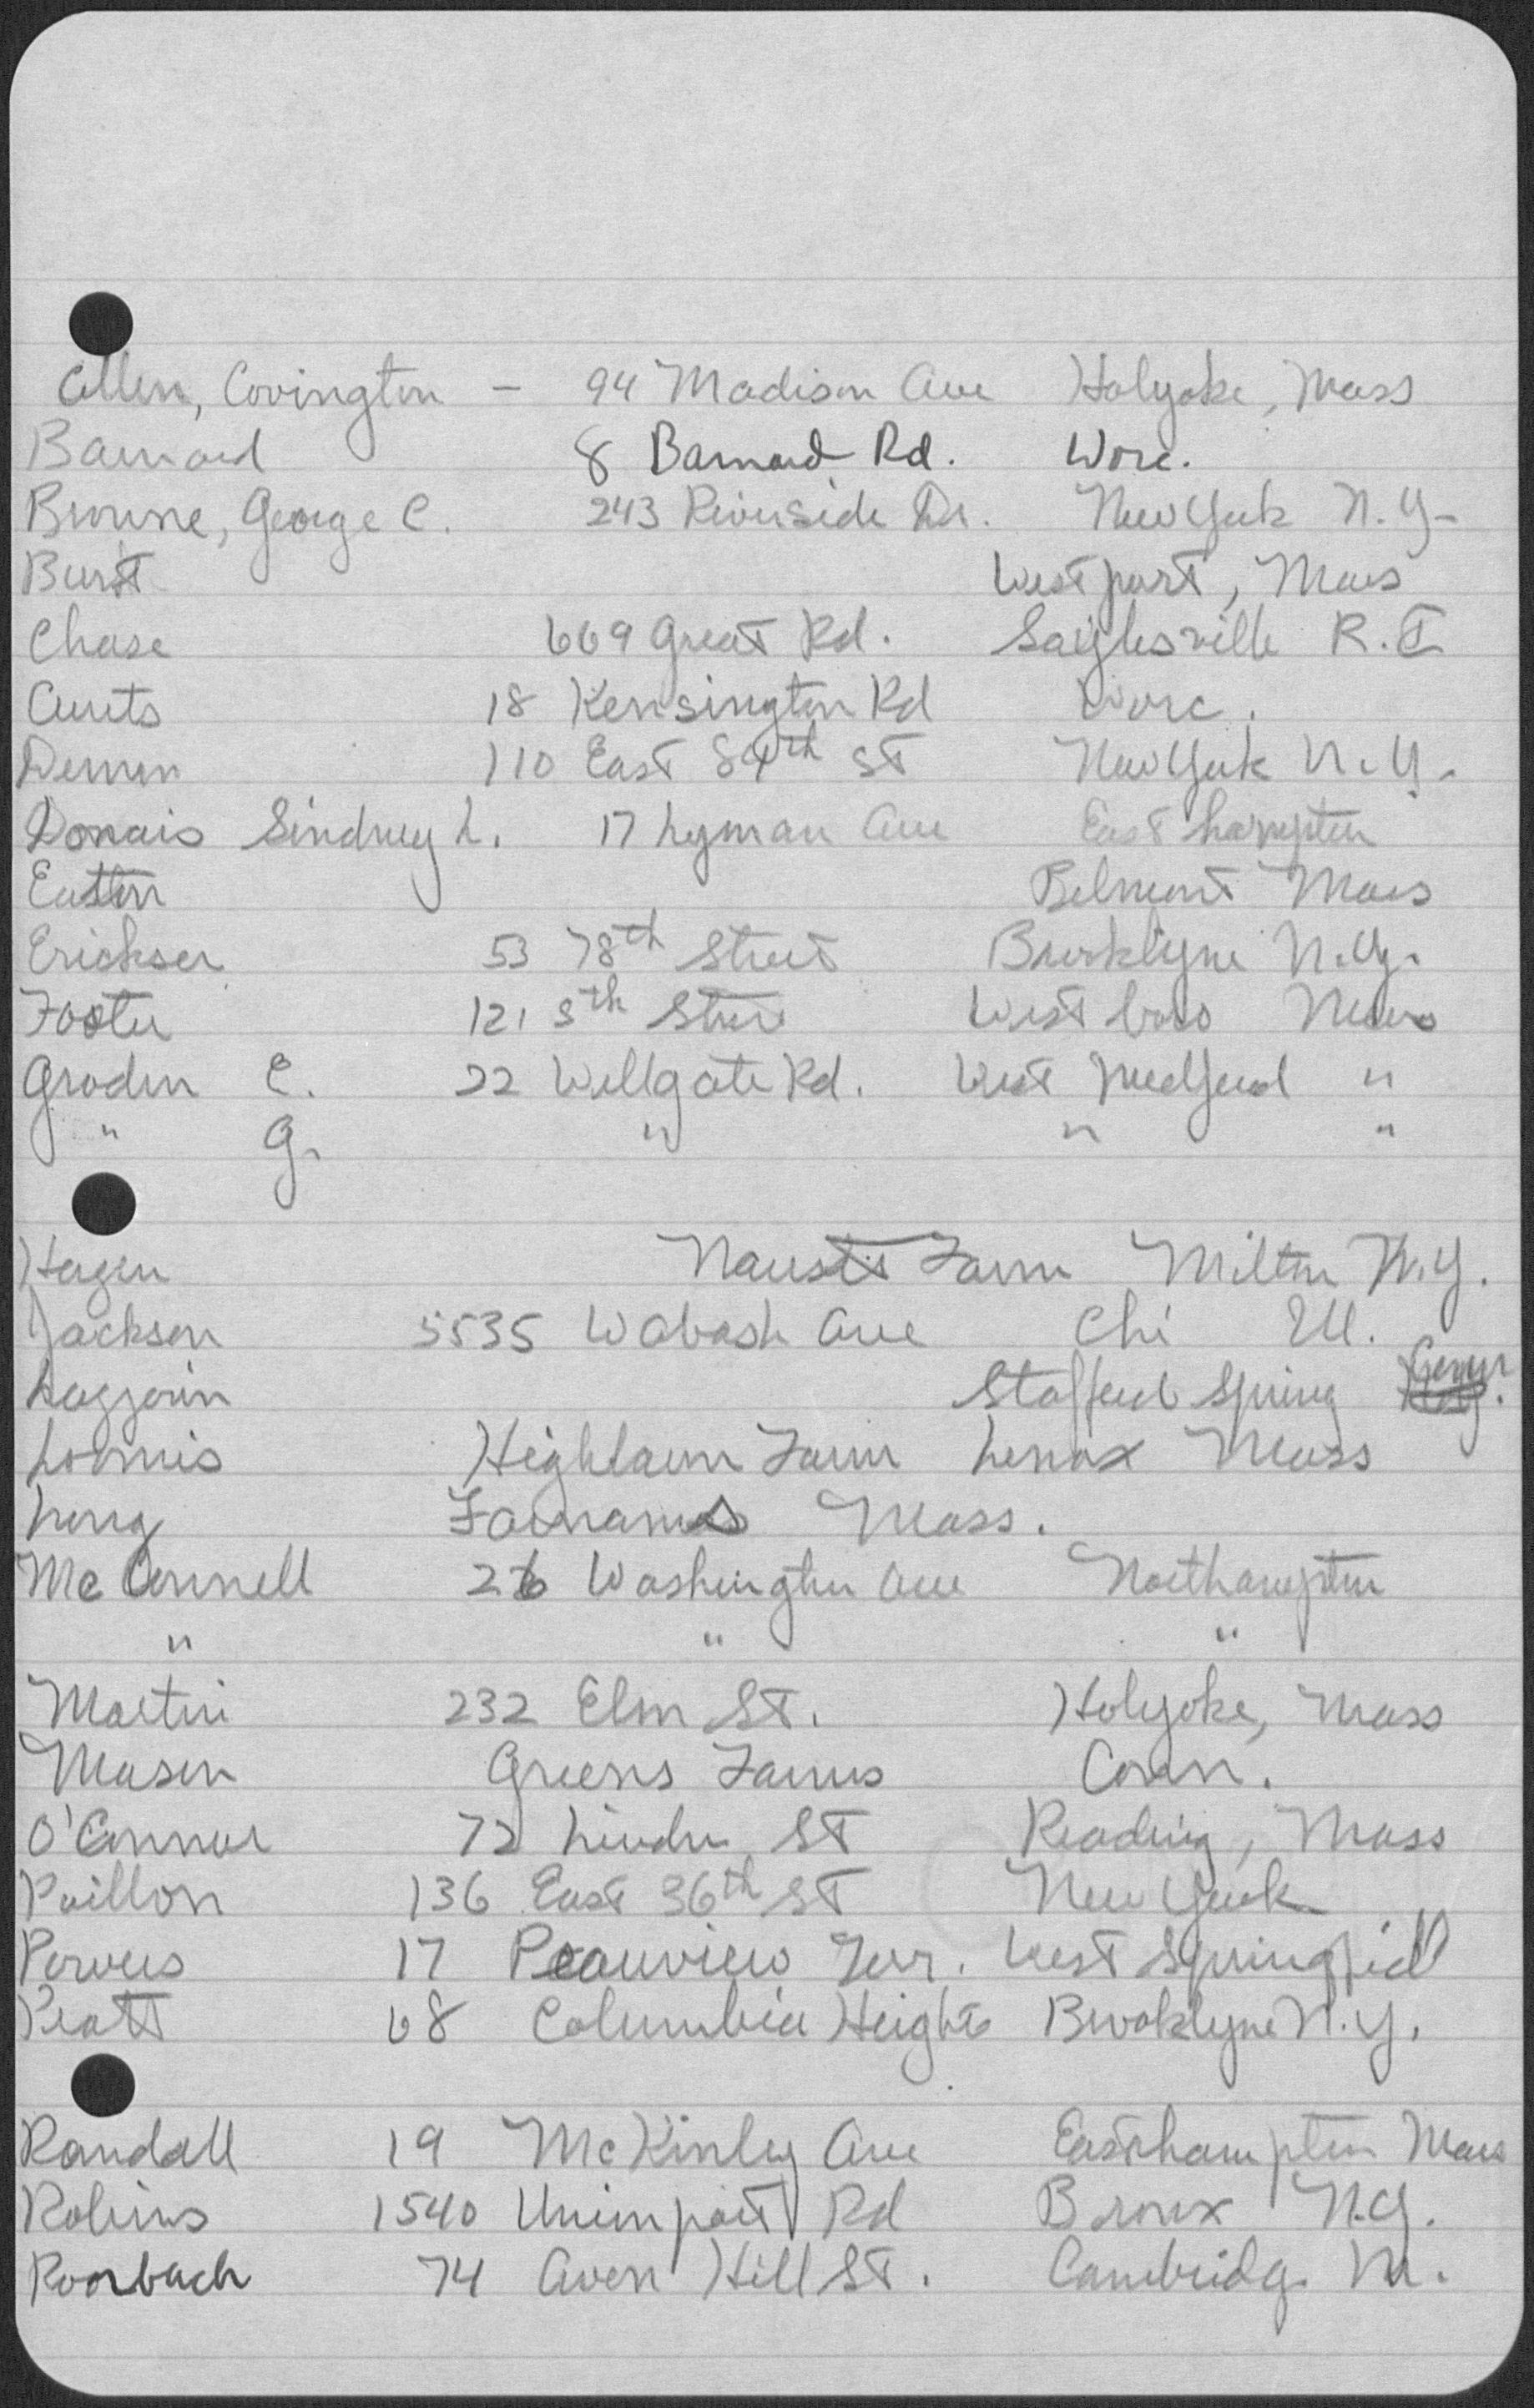 Allen, Covington - 94 Madison Ave Holyoke, Mass
Barnard 8 Barnard Rd. Worc.
Browne, George C. 243 Riverside Dr. New York N.Y-
Burt Westport, Mass
Chase 669 Great Rd. Saylesville R.I
Curits 18 Kensington Rd Worc.
Demon 110 East 84th ST New York N.Y.
Donais Sindney L. 17 Lyman Ave East hampton
Easton Belmont Mass
Erickson 53 78th Street Brooklyne N.Y.
Foster 121 5th Street West boro Mass
Grodin E. 22 Wellgate Rd. West Medford "
" G. " " "
Hagen Farm Milton N.Y.
Jackson 5535 Wabash Ave Chi Ill.
Lagzorin Stafford Spring Conn
Loomis Highlawn Farm Lenox Mass
Long Farnams Mass.
McConnell 26 Washington Ave Northampton
" " "
Martin 232 Elm St. Holyoke, Mass
Mason Greens Farms Conn.
O'Connor 72 Linden ST Reading, Mass
Paillon 136 East 36th ST New York
Porves 17 Terr. West Springfield
Pratt 68 Columbia Heights Brooklyne N.Y.
Randall 19 McKinley Ave Easthampton Mass
Robins 1540 Unionport Rd Bronx N.Y.
Roorbach 74 Avon Hill ST. Cambridg. M.